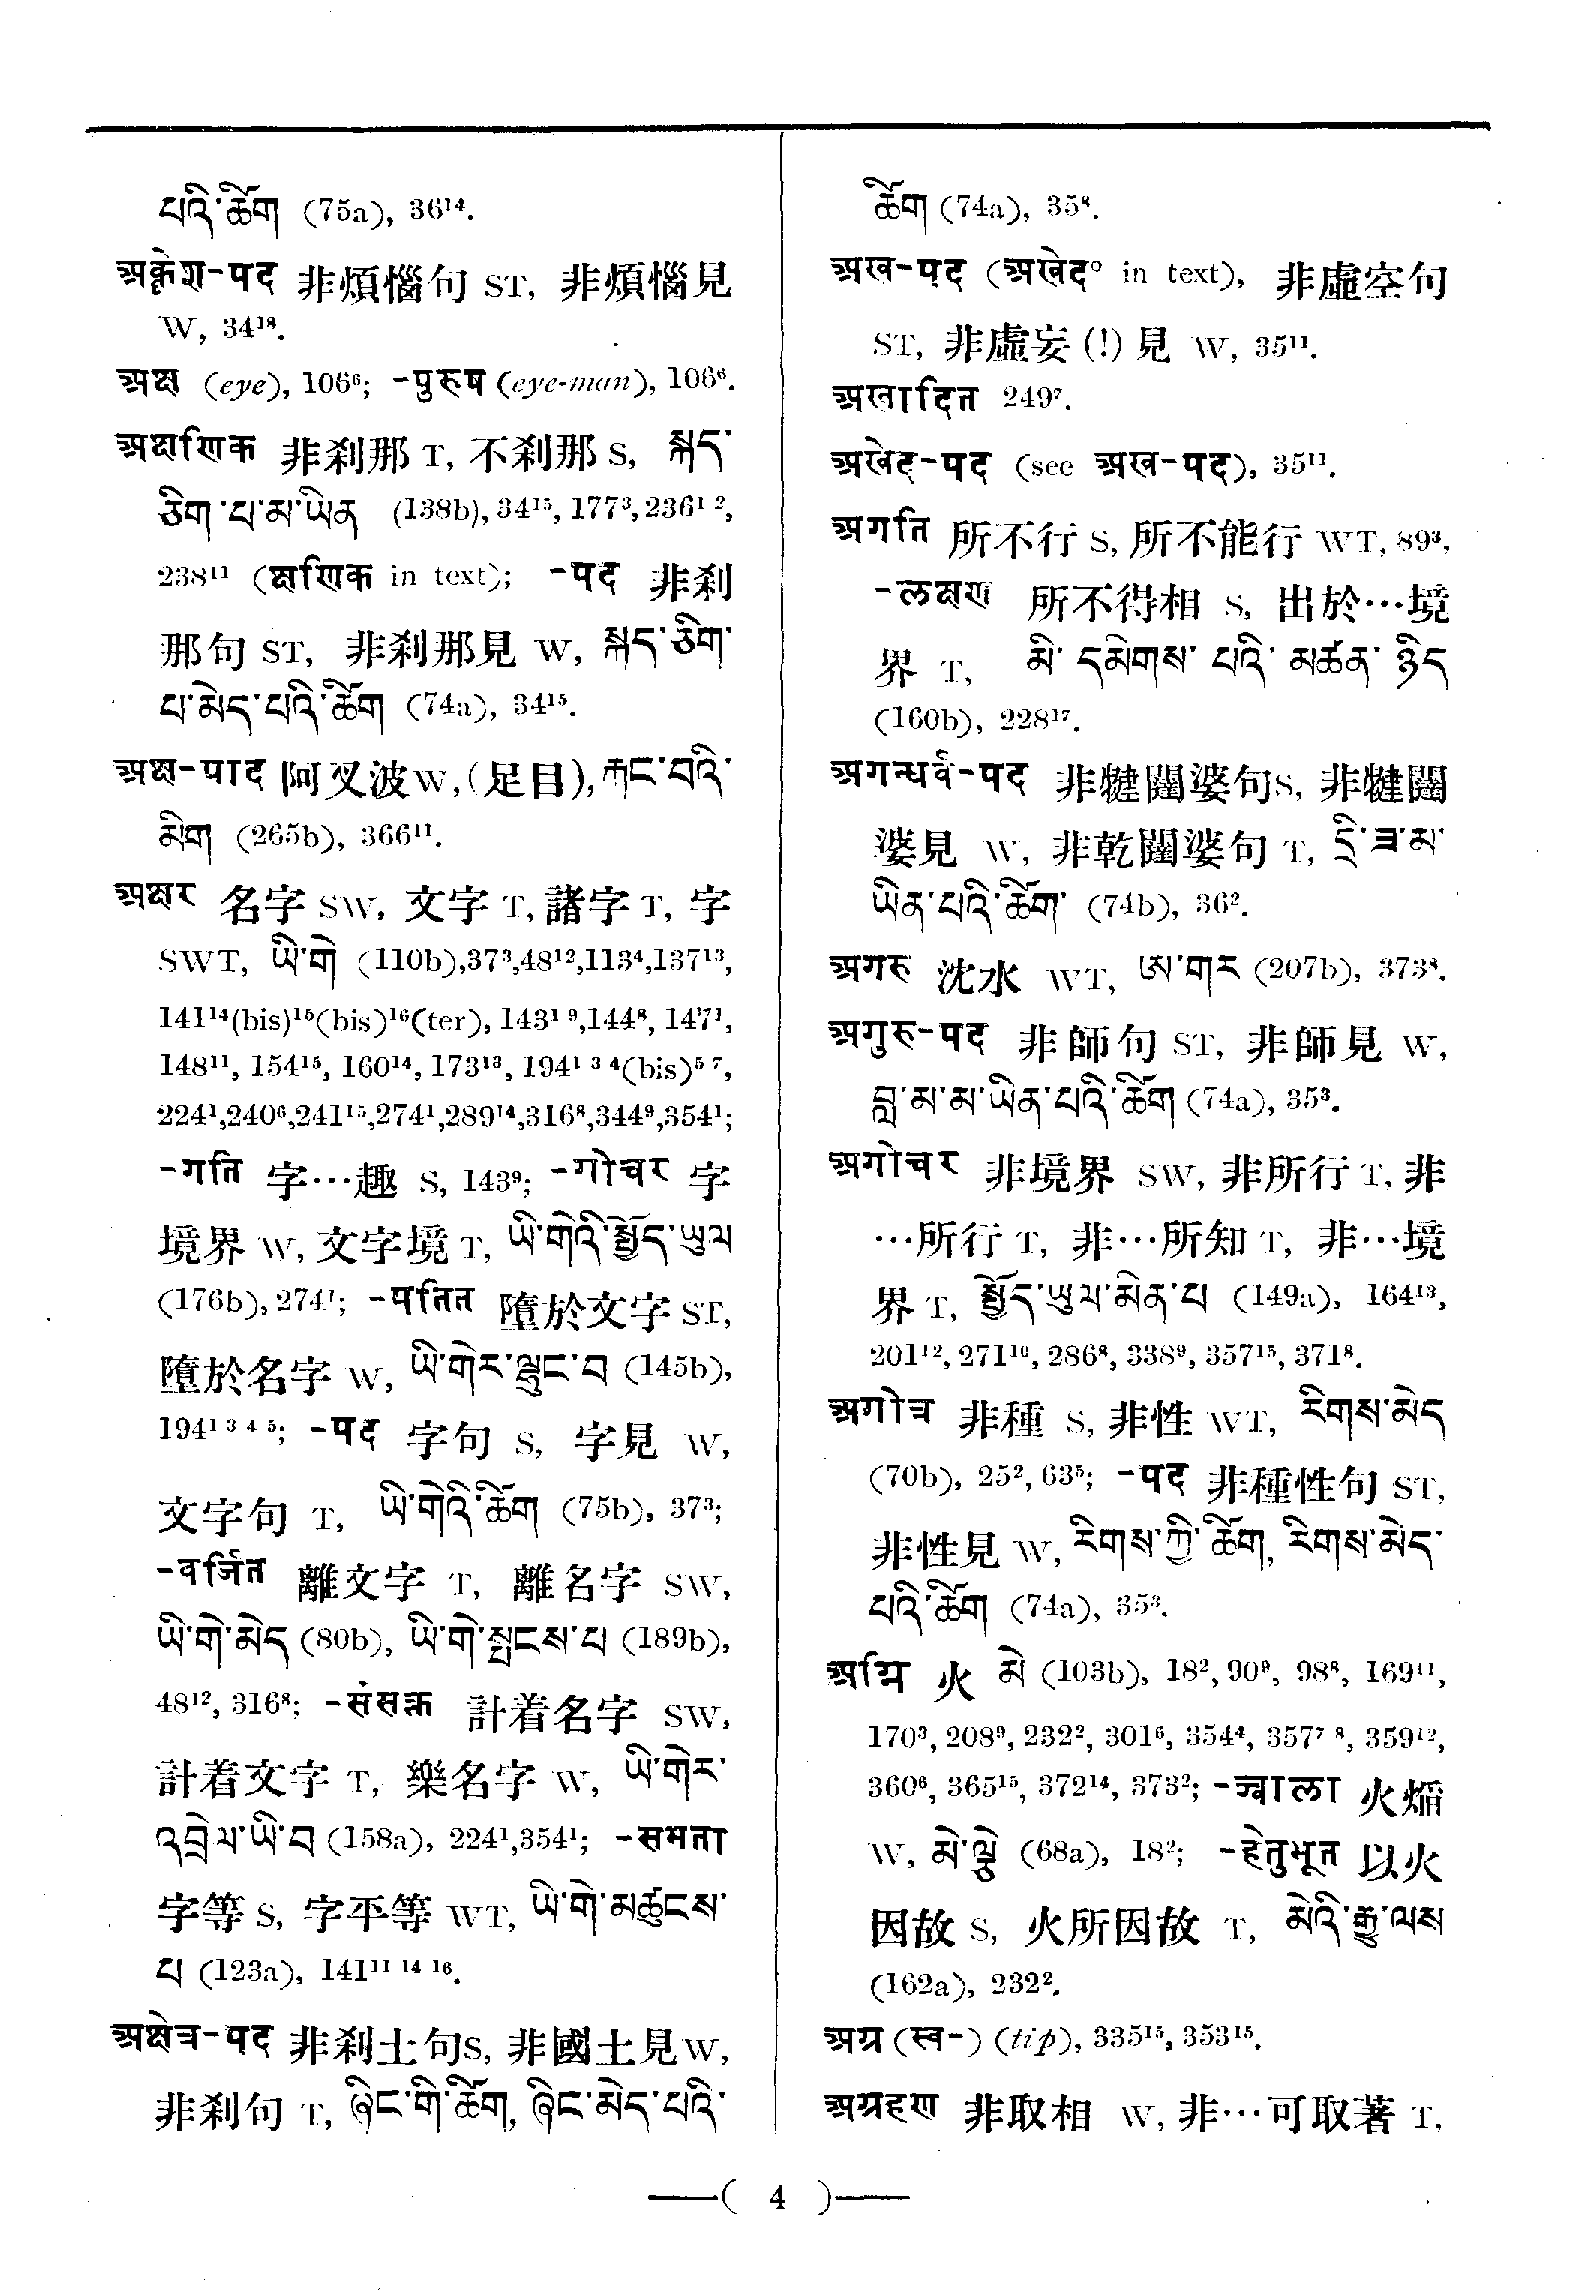 པའི་ཚིག (75a), 36¹⁴.
अक्लेश-पद 非煩惱句 ST, 非煩惱見
W, 34¹⁸.
अक्ष (eye), 106⁶; -पुरुष (eye-man), 106⁶.
अक्षणिक 非剎那 T, 不剎那 S, སྐད་
ཅིག་པ་མ་ཡིན (138b), 34¹⁵, 177³, 236¹ ²,
238¹¹ (क्षणिक in text); -पद 非剎
那句 ST, 非剎那見 W, སྐད་ཅིག་
པ་མེད་པའི་ཚིག (74a), 34¹⁵.
अक्ष-पाद 阿叉波 W, (足目), རྐང་བའི་
མིག (265b), 366¹¹.
अक्षर 名字 SW, 文字 T, 諸字 T, 字
SWT, ཡི་གེ (110b), 37³, 48¹², 113⁴, 137¹³,
141¹⁴(bis)¹⁵(bis)¹⁶(ter), 143¹ ⁹, 144⁸, 147¹,
148¹¹, 154¹⁵, 160¹⁴, 173¹³, 194¹ ³ ⁴(bis)⁵ ⁷,
224¹, 240⁶, 241¹⁵, 274¹, 289¹⁴, 316⁸, 344⁹, 354¹;
-गति 字…趣 S, 143⁹; -गोचर 字
境界 W, 文字境 T, ཡི་གེའི་སྤྱོད་ཡུལ
(176b), 274¹; -पतित 墮於文字 ST,
墮於名字 W, ཡི་གེར་ལྟུང་བ (145b),
194¹ ³ ⁴ ⁵; -पद 字句 S, 字見 W,
文字句 T, ཡི་གེའི་ཚིག (75b), 37³;
-वर्जित 離文字 T, 離名字 SW,
ཡི་གེ་མེད (80b), ཡི་གེ་སྤངས་པ (189b),
48¹², 316⁸; -संसक्त 計着名字 SW,
計着文字 T, 樂名字 W, ཡི་གེར་
འབྲེལ་ཡི་བ (158a), 224¹, 354¹; -समता
字等 S, 字平等 WT, ཡི་གེ་མཚུངས་
པ (123a), 141¹¹ ¹⁴ ¹⁶.
अक्षेत्र-पद 非剎土句 S, 非國土見 W,
非剎句 T, ཞིང་གི་ཚིག, ཞིང་མེད་པའི་
ཚིག (74a), 35⁸.
अख-पद (अखेद° in text), 非虛空句
ST, 非虛妄 (!) 見 W, 35¹¹.
अखादित 249⁷.
अखेद-पद (see अख-पद), 35¹¹.
अगति 所不行 S, 所不能行 WT, 89³,
-लक्षण 所不得相 S, 出於…境
界 T, མི་ དམིགས་ པའི་ མཚན་ ཉིད
(160b), 228¹⁷.
अगन्धर्व-पद 非犍闥婆句 S, 非犍闥
婆見 W, 非乾闥婆句 T, དྲི་ཟ་མ་
ཡིན་པའི་ཚིག་ (74b), 36².
अगरु 沈水 WT, ཨ་གར (207b), 373⁸.
अगुरु-पद 非師句 ST, 非師見 W,
བླ་མ་མ་ཡིན་པའི་ཚིག (74a), 35³.
अगोचर 非境界 SW, 非所行 T, 非
…所行 T, 非…所知 T, 非…境
界 T, སྤྱོད་ཡུལ་མིན་པ (149a), 164¹³,
201¹², 271¹⁰, 286⁸, 338⁹, 357¹⁵, 371⁸.
अगोत्र 非種 S, 非性 WT, རིགས་མེད
(70b), 25², 63⁵; -पद 非種性句 ST,
非性見 W, རིགས་ཀྱི་ཚིག, རིགས་མེད་
པའི་ཚིག (74a), 35³.
अग्नि 火 མེ (103b), 18², 90⁹, 98⁸, 169¹¹,
170³, 208⁹, 232², 301⁶, 354⁴, 357⁷ ⁸, 359¹²,
360⁶, 365¹⁵, 372¹⁴, 373²; -ज्वाला 火焰
W, མེ་ལྕེ (68a), 18²; -हेतुभूत 以火
因故 S, 火所因故 T, མེའི་རྒྱུ་ལས
(162a), 232².
अग्र (स्व-) (tip), 335¹⁵, 353¹⁵.
अग्रहण 非取相 W, 非…可取著 T,
—( 4 )—